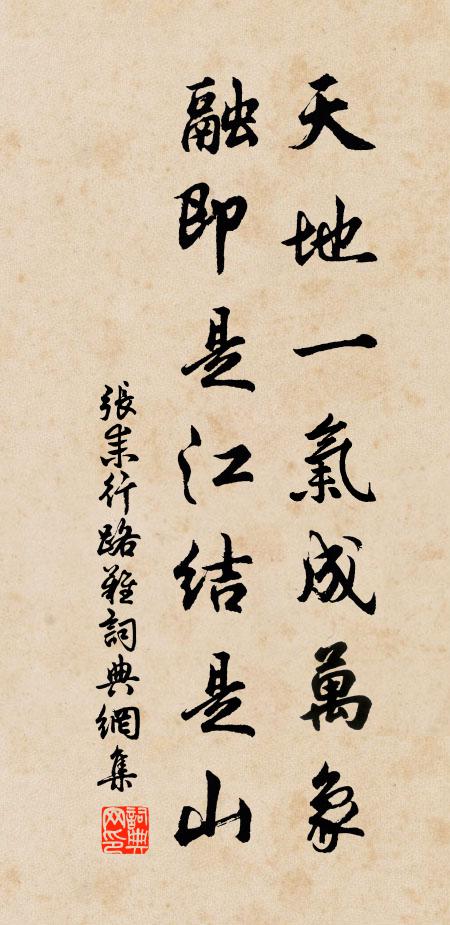 天地一氣成萬象
融即是江結是山
張耒行路難詞典網集
詞典
網印